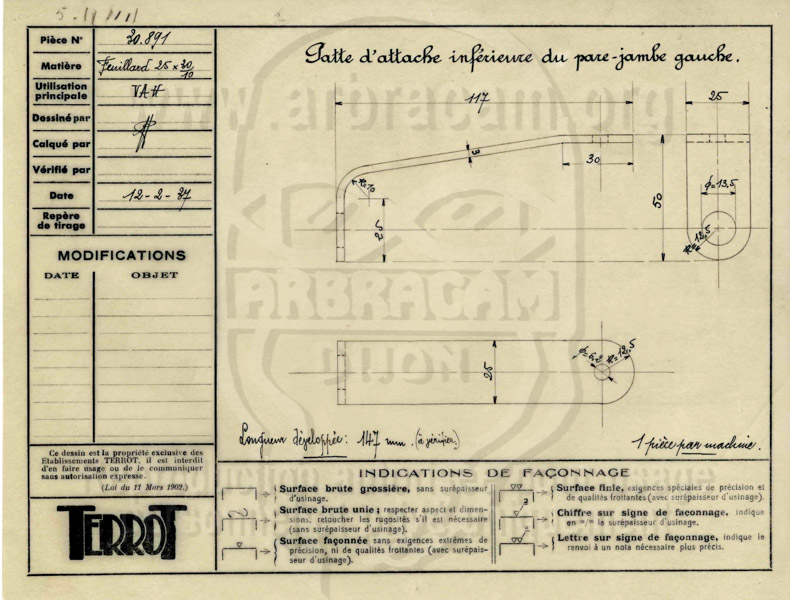 Pièce N° 30.891
Matière Feuillard 25 x 30/10
Utilisation
principale
Dessiné par
Calqué par
Vérifié par
Date 12-2-37
Repère
de tirage
MODIFICATIONS
DATE OBJET
Ce dessin est la propriété exclusive des
Etablissements TERROT, il est interdit
d'en faire usage ou de le communiquer
sans autorisation expresse.
(Loi du 11 Mars 1902.)
TERROT
Patte d'attache inférieure du pare-jambe gauche.
www.arbracam.org
117
25
3
30
R=10
25
50
φ=13,5
R=12,5
ARBRACAM
DIJON
25
φ=6,2
R=12,5
Longueur développée: 147 mm. (à vérifier)
1 pièce par machine.
INDICATIONS DE FAÇONNAGE
Surface brute grossière, sans surépaisseur
d'usinage.
Surface brute unie; respecter aspect et dimen-
sions, retoucher les rugosités s'il est nécessaire
(sans surépaisseur d'usinage).
Surface façonnée sans exigences extrêmes de
précision, ni de qualités frottantes (avec surépais-
seur d'usinage).
Surface finie, exigences spéciales de précision et
de qualités frottantes (avec surépaisseur d'usinage).
Chiffre sur signe de façonnage, indique
en m/m la surépaisseur d'usinage.
Lettre sur signe de façonnage, indique le
renvoi à un nota nécessaire plus précis.